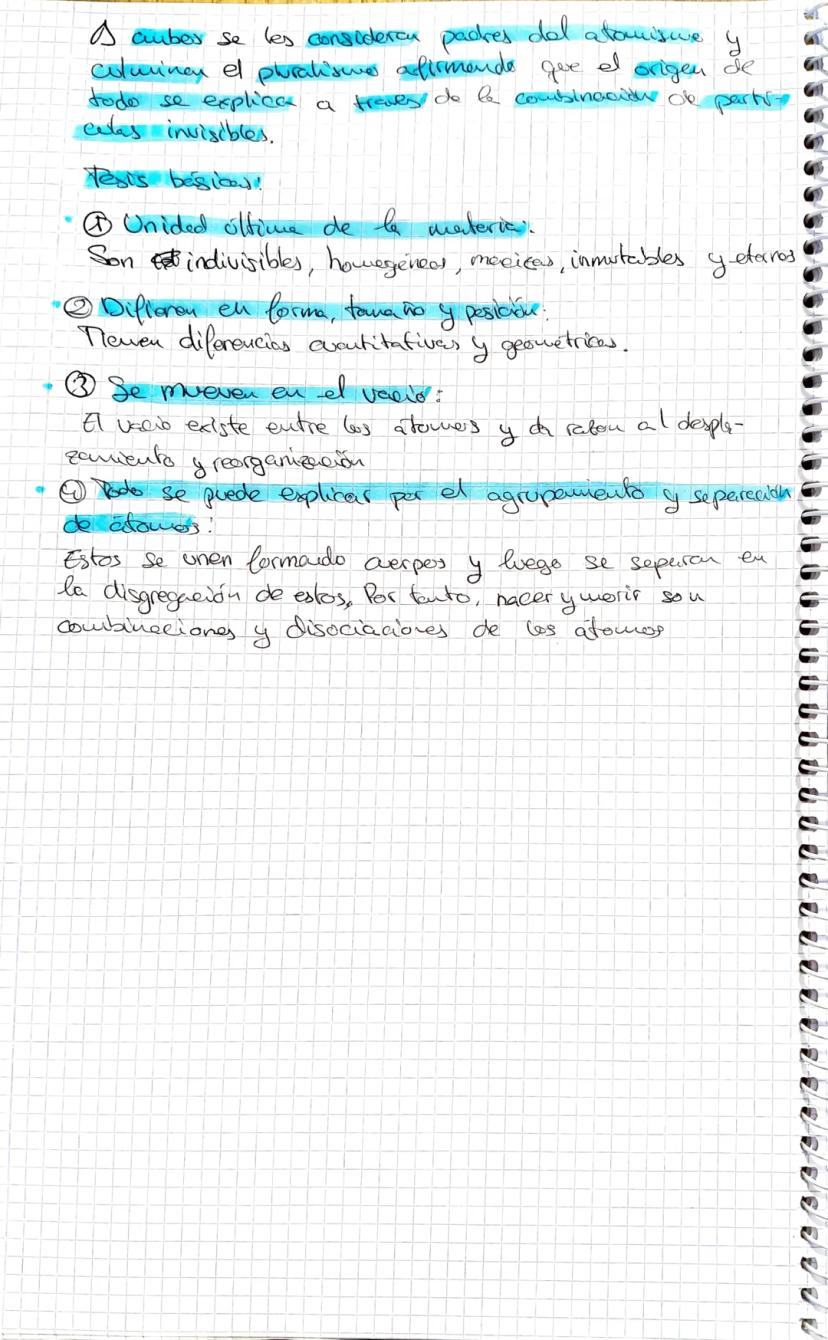 A ambos se les consideran padres del atomismo y
culminan el pluralismo afirmando que el origen de
todo se explica a traves de la combinación de partí-
culas invisibles.
Tesis básicas:
① Unidad última de la materia:
Son indivisibles, homogéneos, macizas, inmutables y eternos
② Difieren en forma, tamaño y posición:
Tienen diferencias cuantitativas y geométricas.
③ Se mueven en el vacío:
El vacío existe entre los átomos y da razon al despla-
zamiento y reorganización
④ Todo se puede explicar por el agrupamiento y separación
de átomos:
Estos se unen formando cuerpos y luego se separan en
la disgregación de estos. Por tanto, nacer y morir son
combinaciones y disociaciones de los átomos